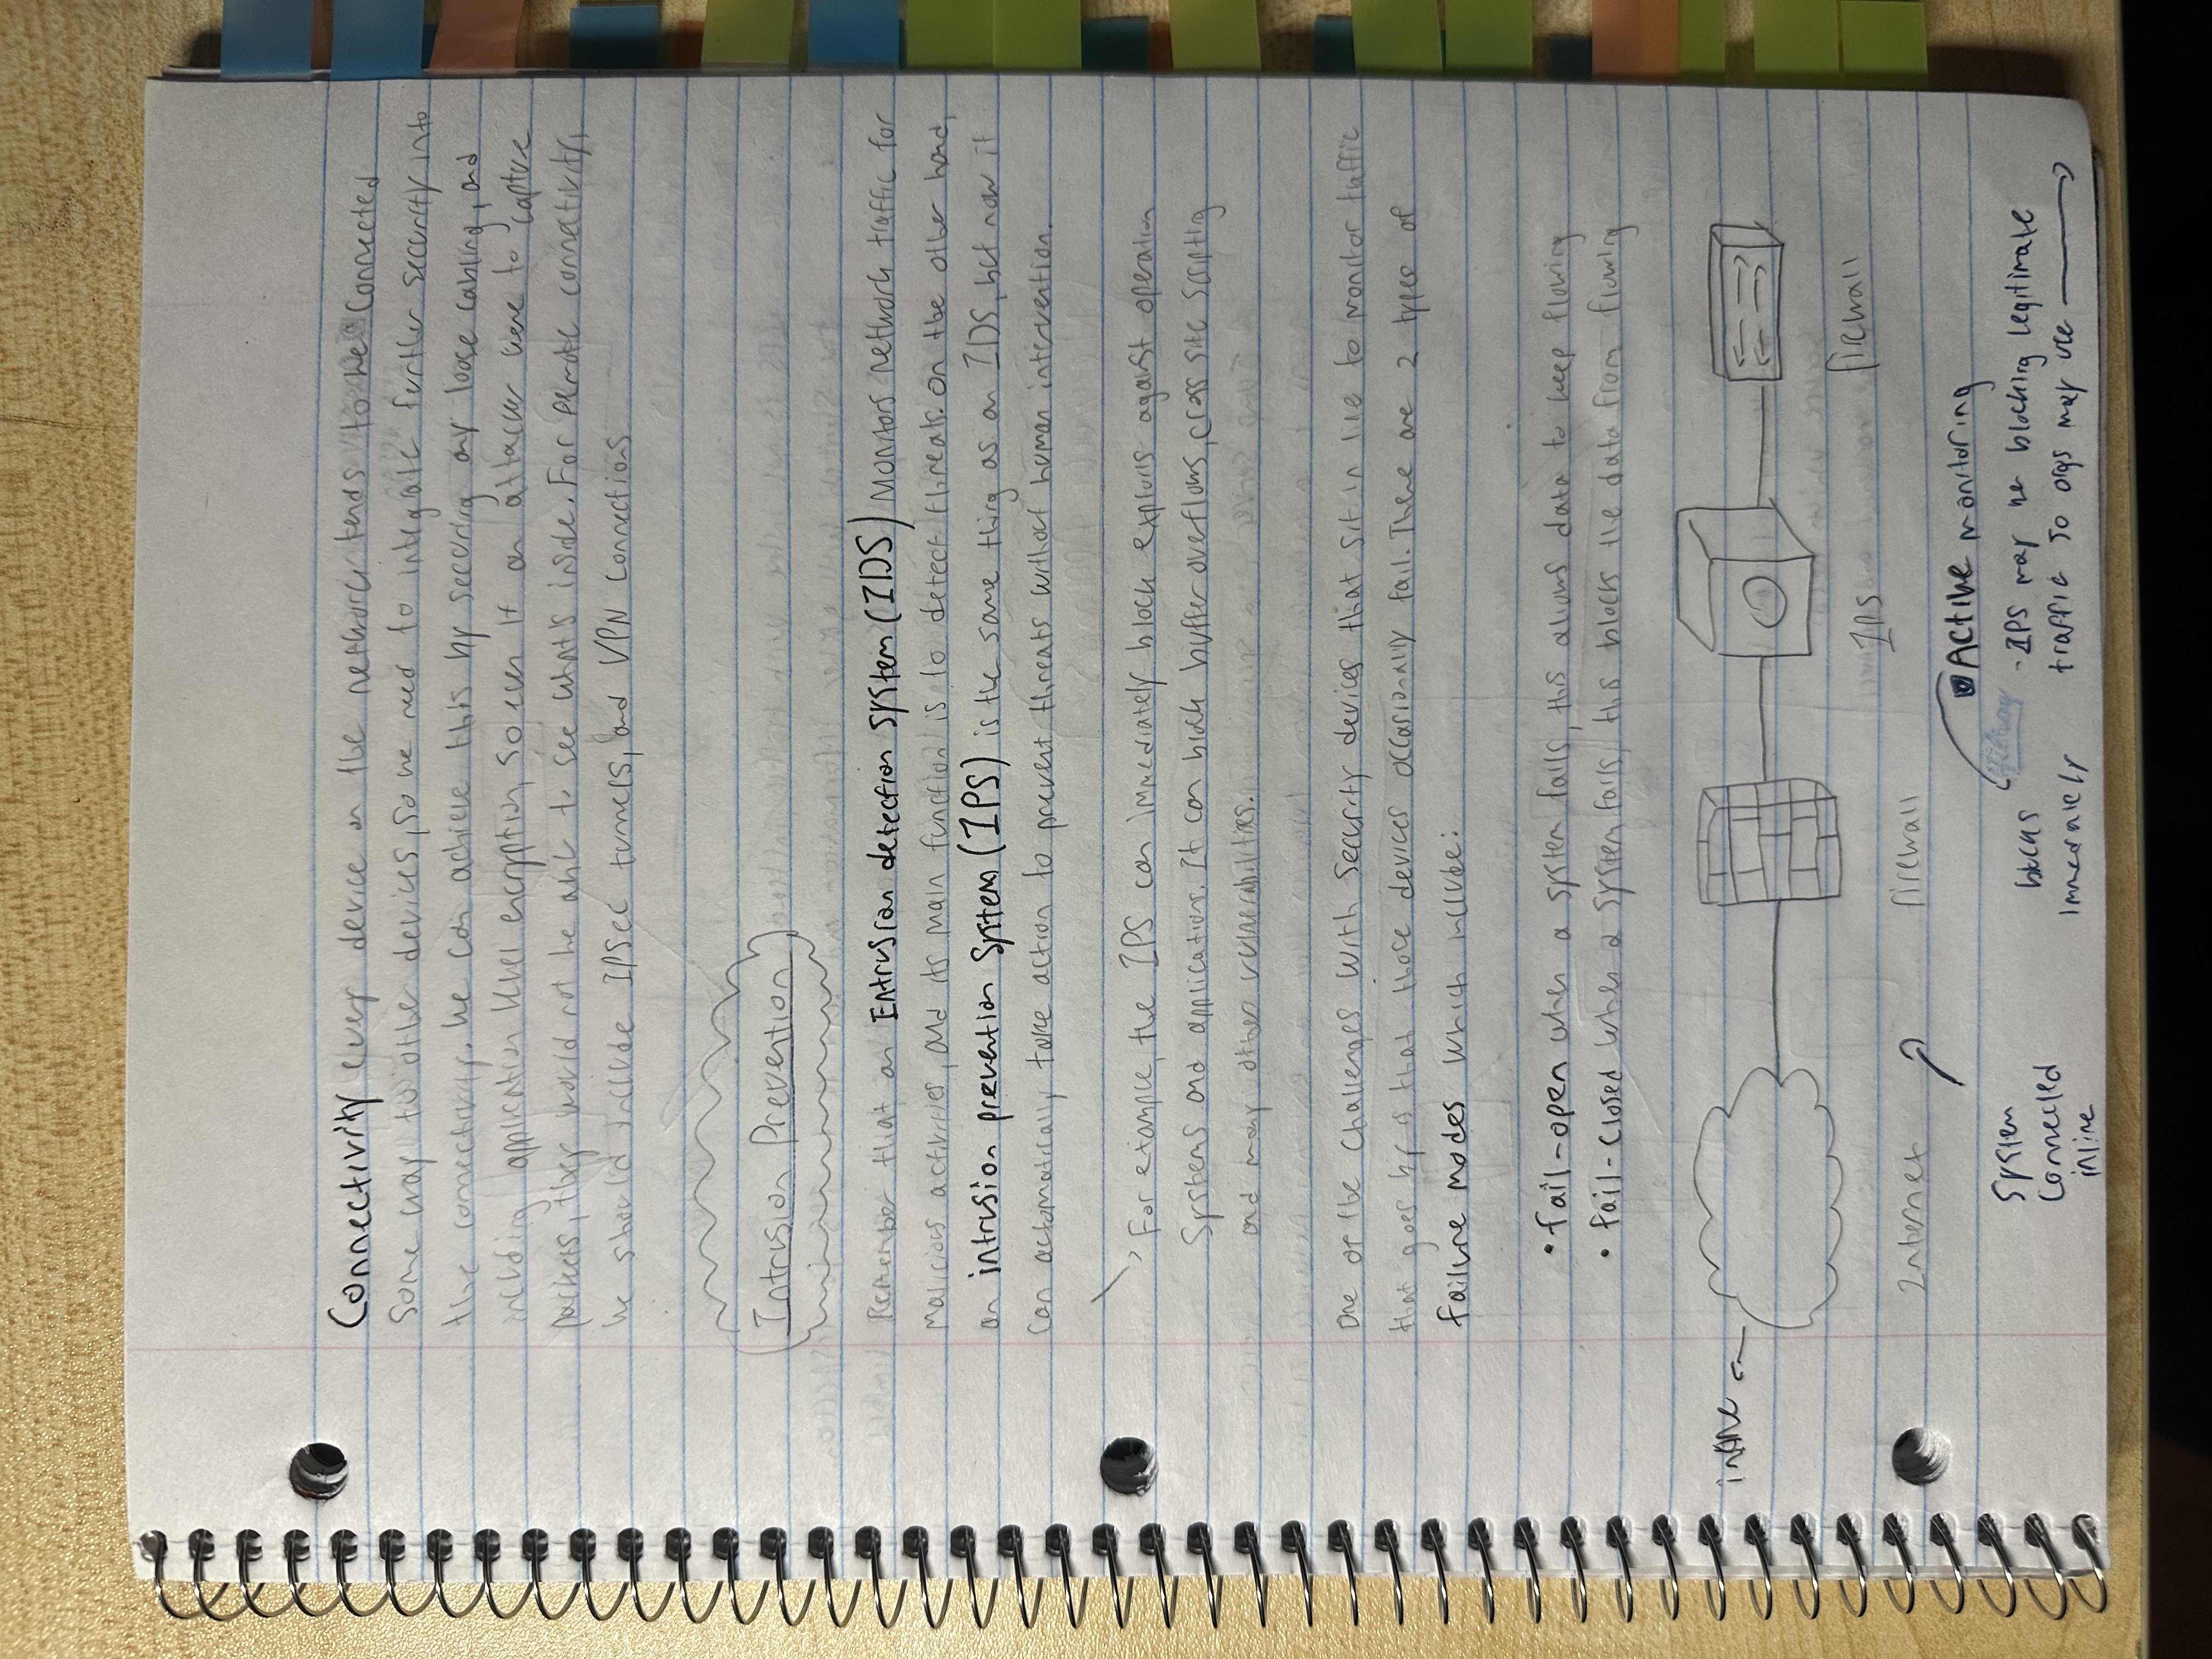 Connectivity every device on the network tends to be connected
Some way to other devices, so we need to integrate further security into
the connectivity. We can achieve this by securing any loose cabling, and
including application level encryption, so even if an attacker were to capture
packets, they would not be able to see what's inside. For remote connectivity,
we should include IPSec tunnels, and VPN connections
Intrusion Prevention
Remember that an Entrusion detection System (IDS) monitors network traffic for
malicious activities, and its main function is to detect threats. On the other hand,
an intrusion prevention System (IPS) is the same thing as an IDS, but now it
can automatically take action to prevent threats without human intervention.
For example, the IPS can immediately block exploits against operation
Systems and applications. It can block buffer overflows, cross site scripting
and many other vulnerabilities.
One of the challenges with security devices that sit in line to monitor traffic
that goes by is that those devices occasionally fail. There are 2 types of
failure modes which include:
• fail-open when a system fails, this allows data to keep flowing
• fail-closed when a system fails, this blocks the data from flowing
inline
Internet
firewall
IPS
firewall
System
Connected
inline
blocks
immediately
Active monitoring
- IPS may be blocking legitimate
traffic so orgs may use